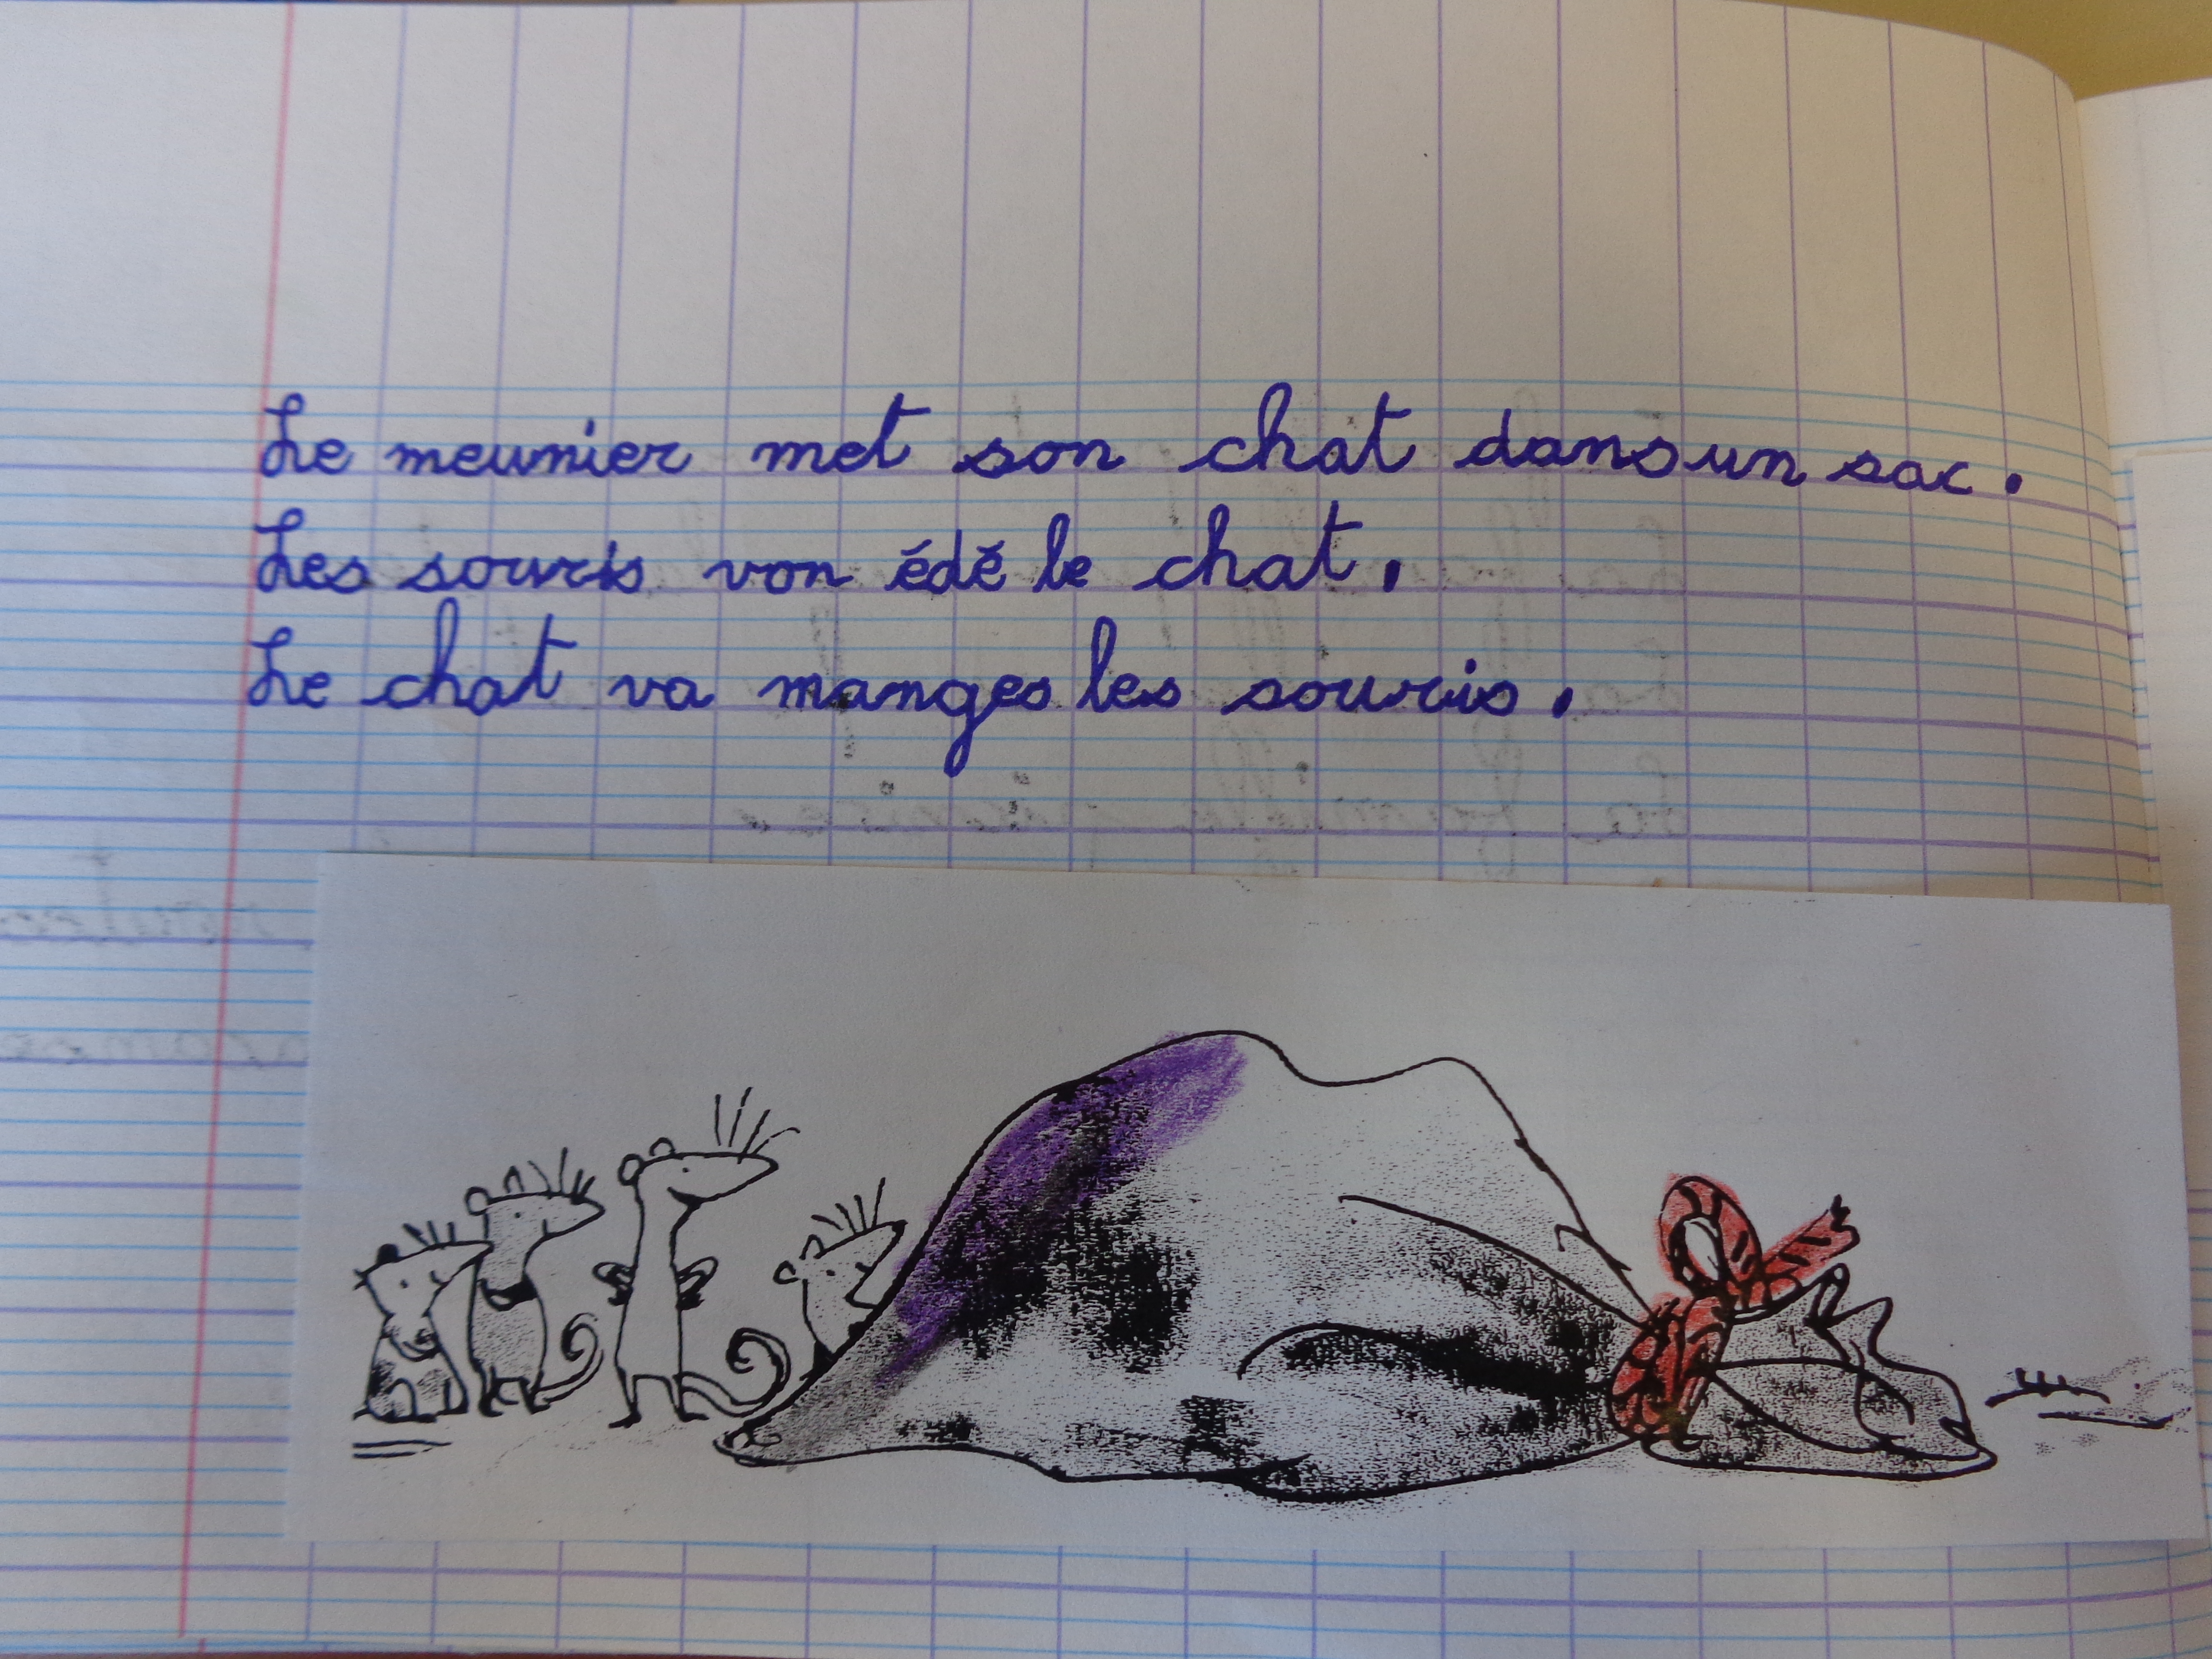 Le meunier met son chat dans un sac.
Les souris von édé le chat.
Le chat va manges les souris.